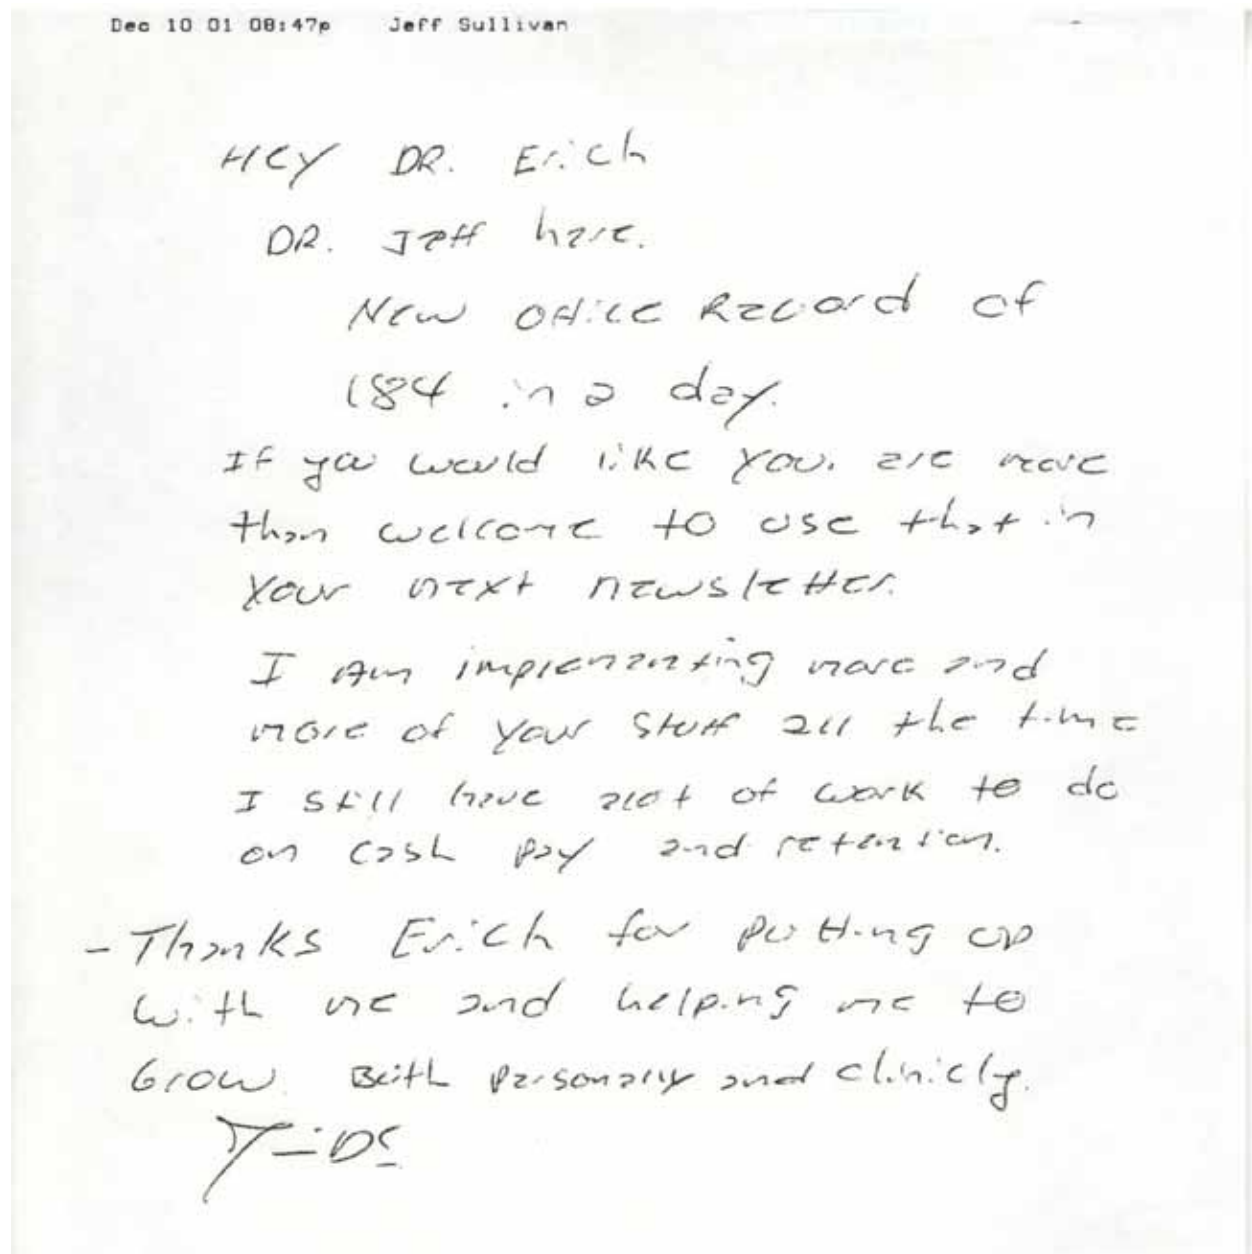 Dec 10 01 08:47p Jeff Sullivan
Hey DR. Erich
DR. Jeff here.
New office Record of
184 in a day.
If you would like you are more
than welcome to use that in
your next newsletter.
I Am implementing more and
more of your stuff all the time
I still have alot of work to do
on cash pay and retention.
- Thanks Erich for putting up
with me and helping me to
Grow. Both personally and clinicly.